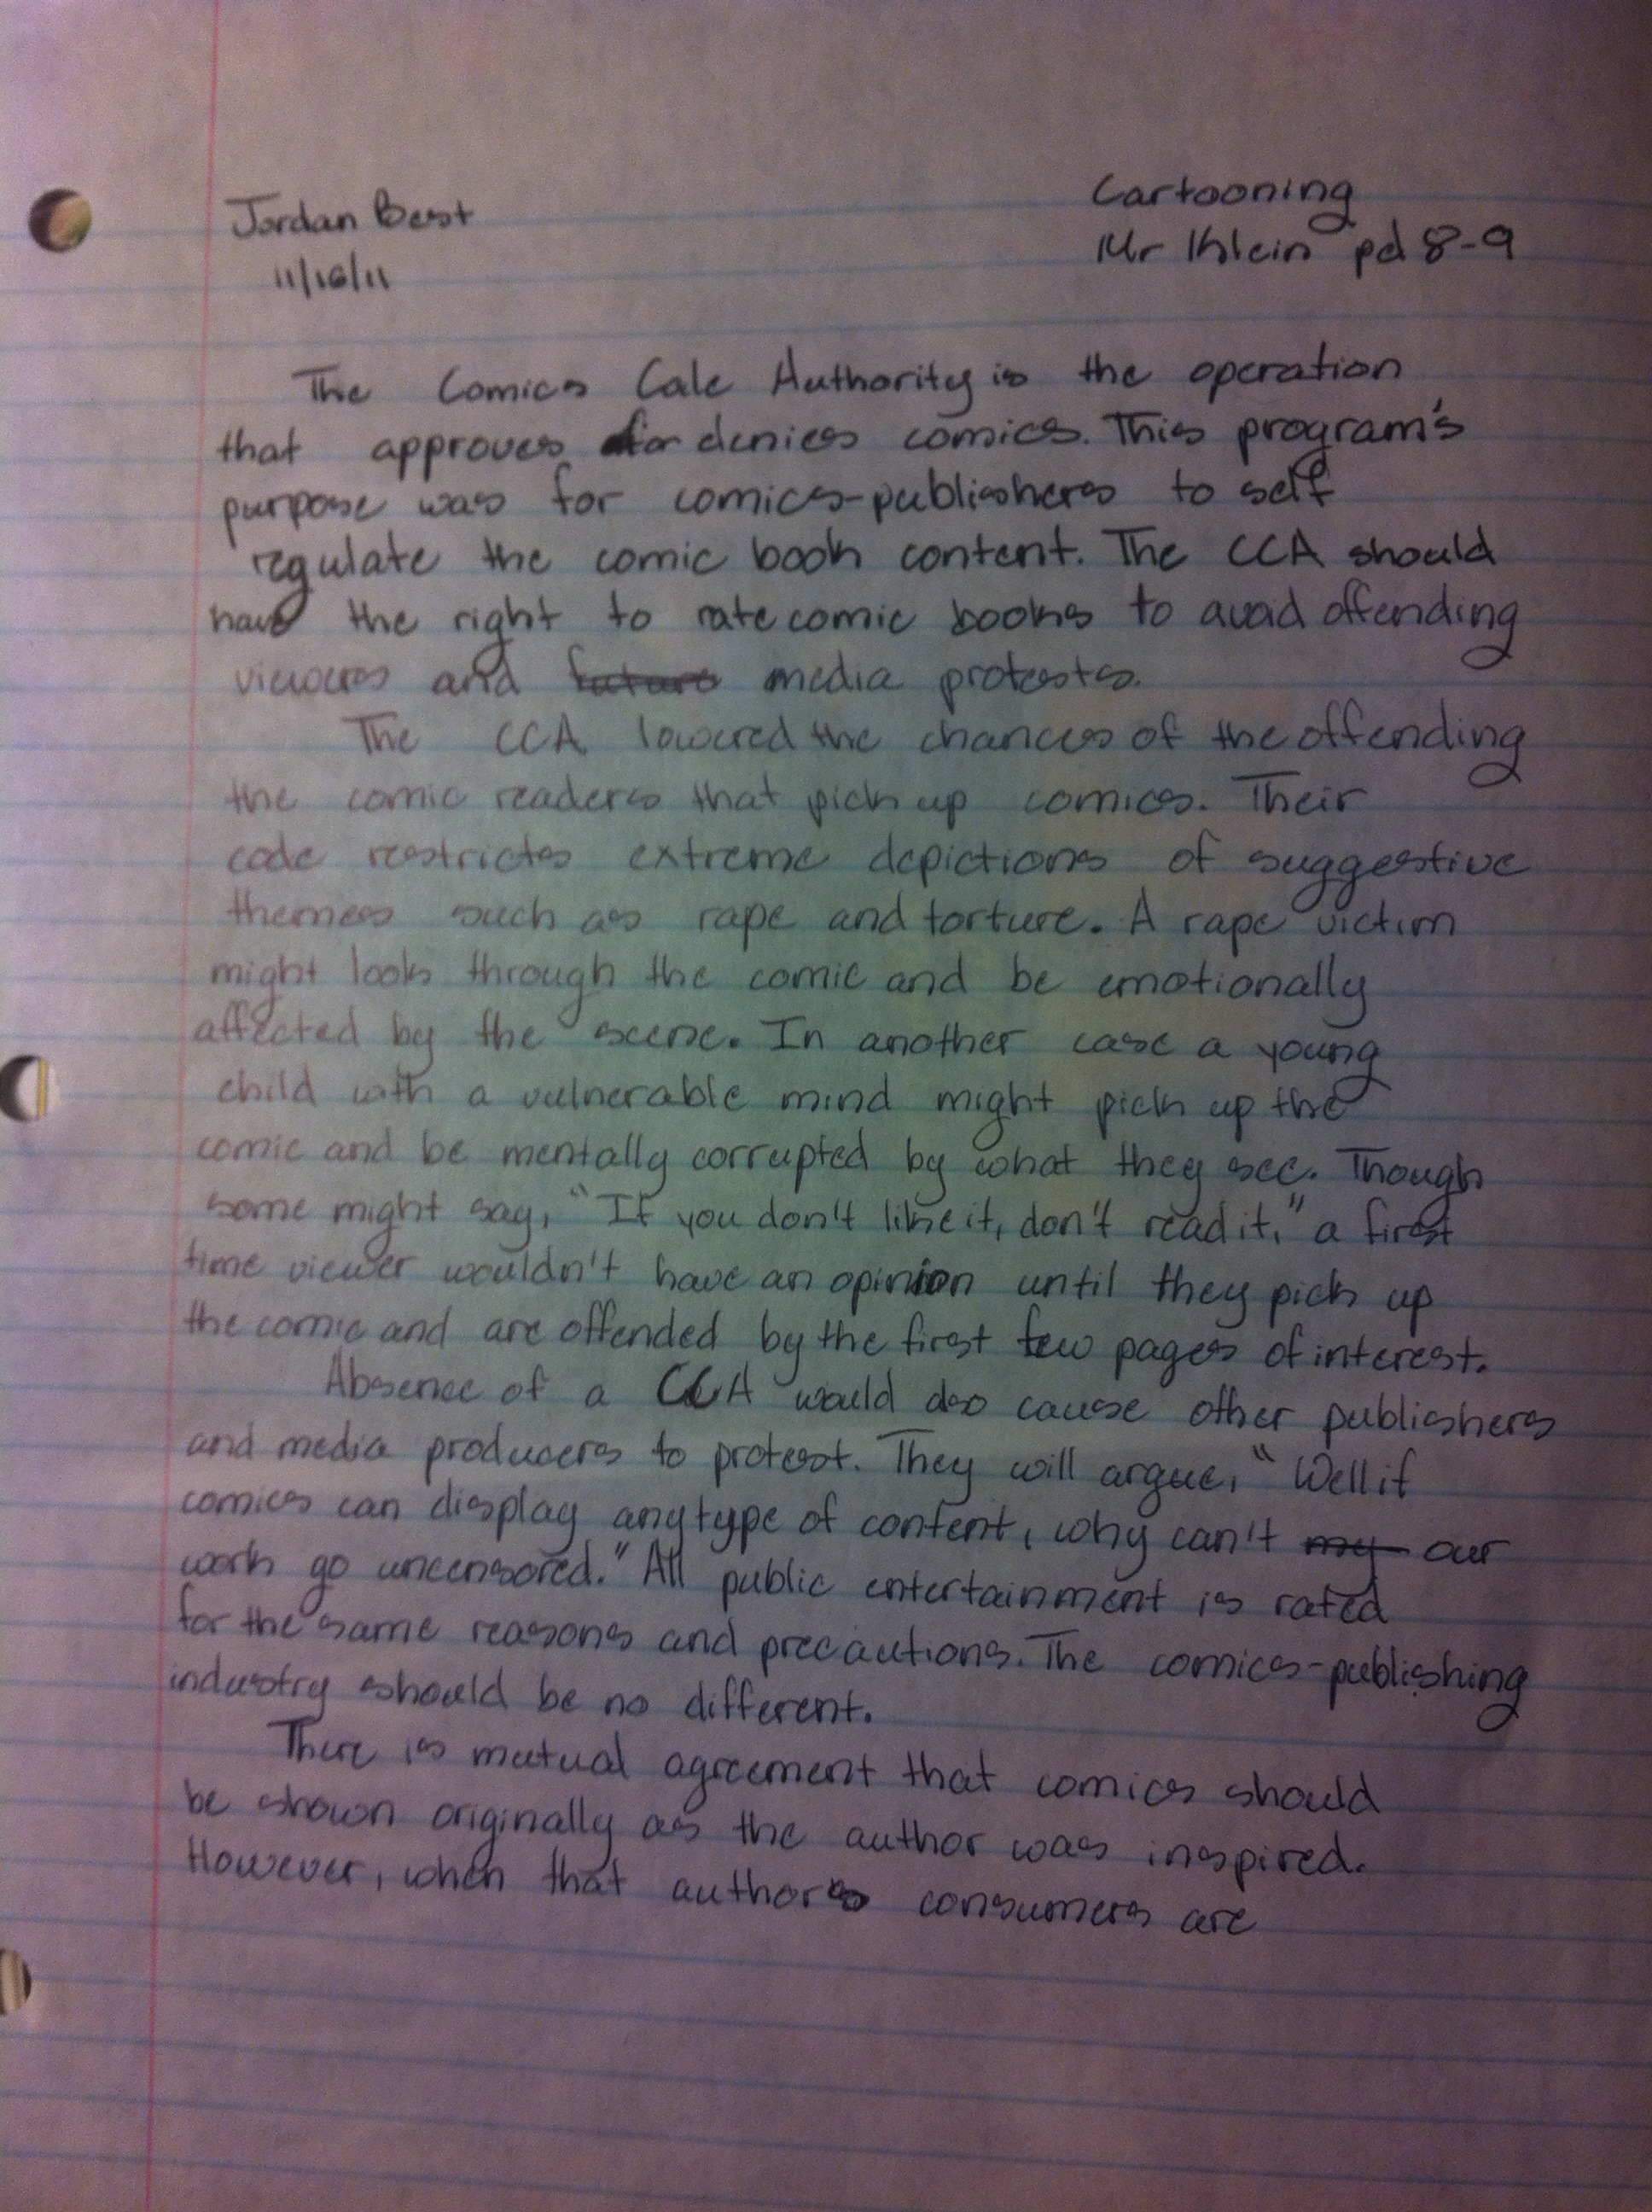 Jordan Best
Cartooning
11/16/11
Mr Klein pd 8-9
The Comics Cale Authority is the operation
that approves or denies comics. This program's
purpose was for comics-publishers to self
regulate the comic book content. The CCA should
have the right to rate comic books to avoid offending
viewers and future media protests.
The CCA lowered the chances of the offending
the comic readers that pick up comics. Their
code restricts extreme depictions of suggestive
themes such as rape and torture. A rape victim
might look through the comic and be emotionally
affected by the scene. In another case a young
child with a vulnerable mind might pick up the
comic and be mentally corrupted by what they see. Though
some might say, "If you don't like it, don't read it," a first
time viewer wouldn't have an opinion until they pick up
the comic and are offended by the first few pages of interest.
Absence of a CCA would also cause other publishers
and media producers to protest. They will argue, "Well if
comics can display any type of content, why can't my our
work go uncensored." All public entertainment is rated
for the same reasons and precautions. The comics-publishing
industry should be no different.
There is mutual agreement that comics should
be shown originally as the author was inspired.
However, when that authors consumers are